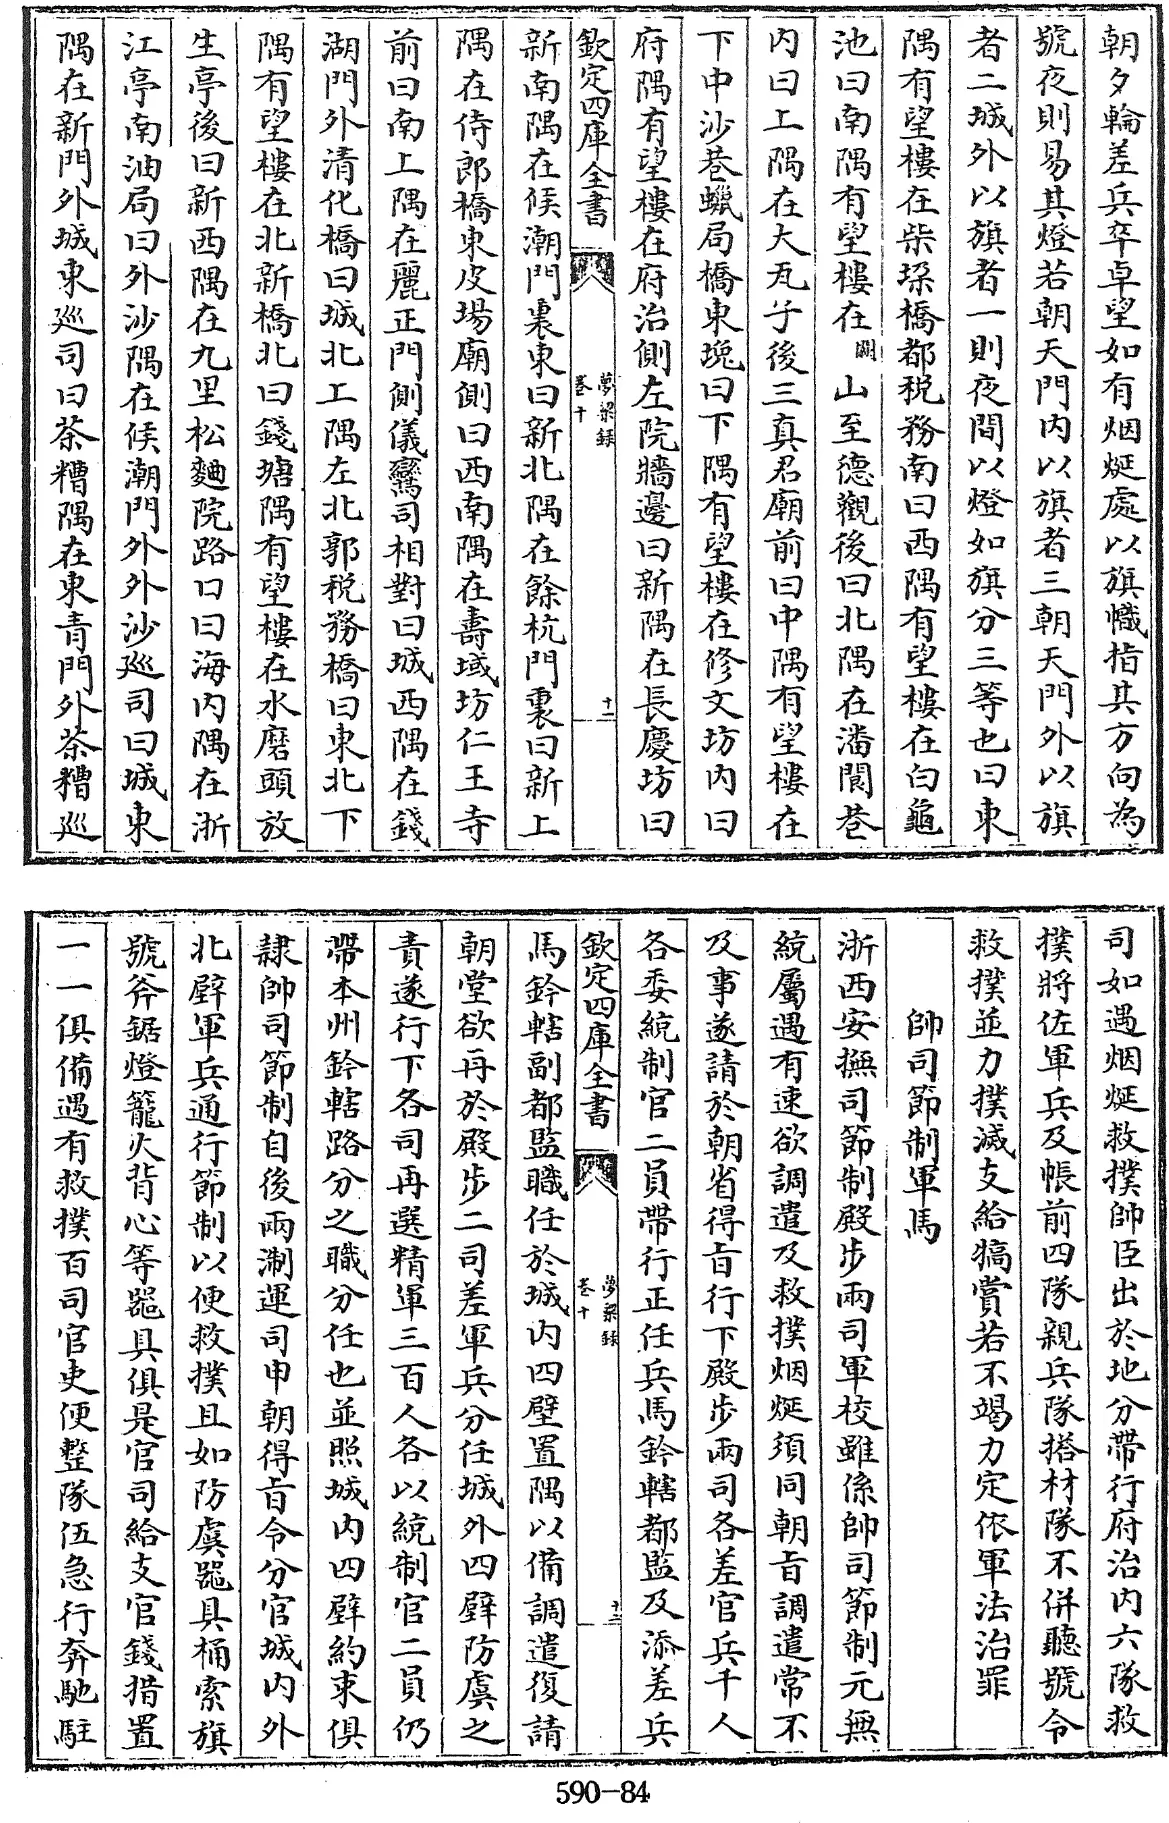 朝夕輪差兵卒卓望如有烟㷌處以旗幟指其方向為
號夜則易其燈若朝天門内以旗者三朝天門外以旗
者二城外以旗者一則夜間以燈如旗分三等也曰東
隅有望樓在柴垜橋都税務南曰西隅有望樓在白龜
池曰南隅有望樓在闕山至德觀後曰北隅在潘閬巷
内曰上隅在大瓦子後三真君廟前曰中隅有望樓在
下中沙巷蠟局橋東堍曰下隅有望樓在修文坊内曰
府隅有望樓在府治側左院牆邊曰新隅在長慶坊曰
欽定四庫全書
夢粱録
卷十
十一
新南隅在候潮門裏東曰新北隅在餘杭門裏曰新上
隅在侍郎橋東皮場廟側曰西南隅在壽域坊仁王寺
前曰南上隅在麗正門側儀鸞司相對曰城西隅在錢
湖門外清化橋曰城北上隅左北郭税務橋曰東北下
隅有望樓在北新橋北曰錢塘隅有望樓在水磨頭放
生亭後曰新西隅在九里松麯院路口曰海内隅在浙
江亭南油局曰外沙隅在候潮門外外沙廵司曰城東
隅在新門外城東廵司曰茶糟隅在東青門外茶糟廵
司如遇烟㷌救撲帥臣出於地分帶行府治内六隊救
撲將佐軍兵及帳前四隊親兵隊搭材隊不併聽號令
救撲並力撲滅支給犒賞若不竭力定依軍法治罪
帥司節制軍馬
浙西安撫司節制殿步兩司軍校雖係帥司節制元無
統屬遇有速欲調遣及救撲烟㷌須同朝旨調遣常不
及事遂請於朝省得旨行下殿步兩司各差官兵千人
各委統制官二員帶行正任兵馬鈐轄都監及添差兵
欽定四庫全書
夢粱録
卷十
十二
馬鈐轄副都監職任於城内四壁置隅以備調遣復請
朝堂欲再於殿步二司差軍兵分任城外四壁防虞之
責遂行下各司再選精軍三百人各以統制官二員仍
帶本州鈐轄路分之職分任也並照城内四壁約束俱
隷帥司節制自後兩淛運司申朝得旨令分官城内外
北壁軍兵通行節制以便救撲且如防虞器具桶索旗
號斧鋸燈籠火背心等器具俱是官司給支官錢措置
一一俱備遇有救撲百司官吏便整隊伍急行奔馳駐
590-84